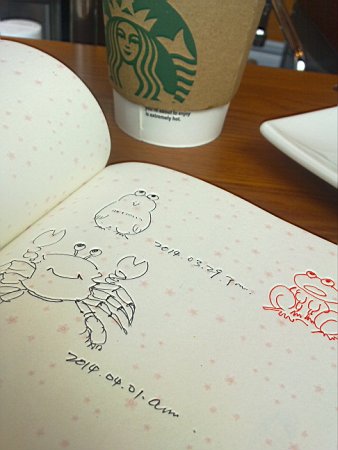 you're about to enjoy
is extremely hot.
2014.03.29.pm.
2014.04.01.am